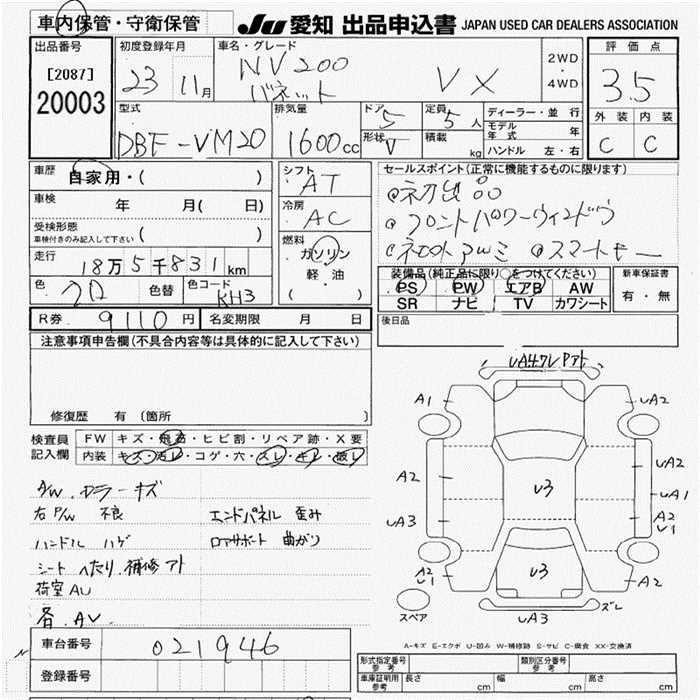 車内保管・守衛保管
JU 愛知 出品申込書 JAPAN USED CAR DEALERS ASSOCIATION
出品番号
[2087]
20003
初度登録年月
23 11月
車名・グレード
NV200
バネット
VX
2WD
・
4WD
評価点
3.5
外装 内装
C C
型式
DBF-VM20
排気量
1600cc
ドア
5
形状
V
定員
5人
積載
kg
ディーラー・並行
モデル年式 年
ハンドル 左・右
車歴
自家用・( )
車検
年 月( 日)
受検形態
車検付きのみ記入して下さい ( )
走行
18万5千831km
色
クロ
色替
色コード
KH3
シフト
AT
冷房
AC
燃料
ガソリン
・
軽・油
( )
セールスポイント(正常に機能するものに限ります)
◎初出品
◎フロントパワーウィンドウ
◎ネロ外アルミ ◎スマートキー
装備品(純正品に限り○をつけてください)
PS PW エアB AW
SR ナビ TV カワシート
新車保証書
有・無
R券 9110円
名変期限 月 日
後日品
注意事項申告欄(不具合内容等は具体的に記入して下さい)
修復歴 有(箇所 )
検査員
記入欄
FW キズ・飛石・ヒビ割・リペア跡・X要
内装 キズ・汚レ・コゲ・穴・スレ・キレ・破レ
A/W. カラーキズ
右P/W 不良
ハンドル ハゲ
シート ヘたり.補修アト
荷室AU
各.AV
エンドパネル 歪み
ロアサポート 曲がり
UA4クレPアト
A1 UA2
A2 UA2
UA1
UA3 A2
U1
U3
A2
U1 U3 A2
スペア UA3 ズレ
A-キズ E-エクボ U-凹み W-補修跡 S-サビ C-腐食 XX-交換済
車台番号 021946
登録番号
形式指定番号
参考
類別区分番号
参考
車庫証明用
参考
長さ cm 幅 cm 高さ cm